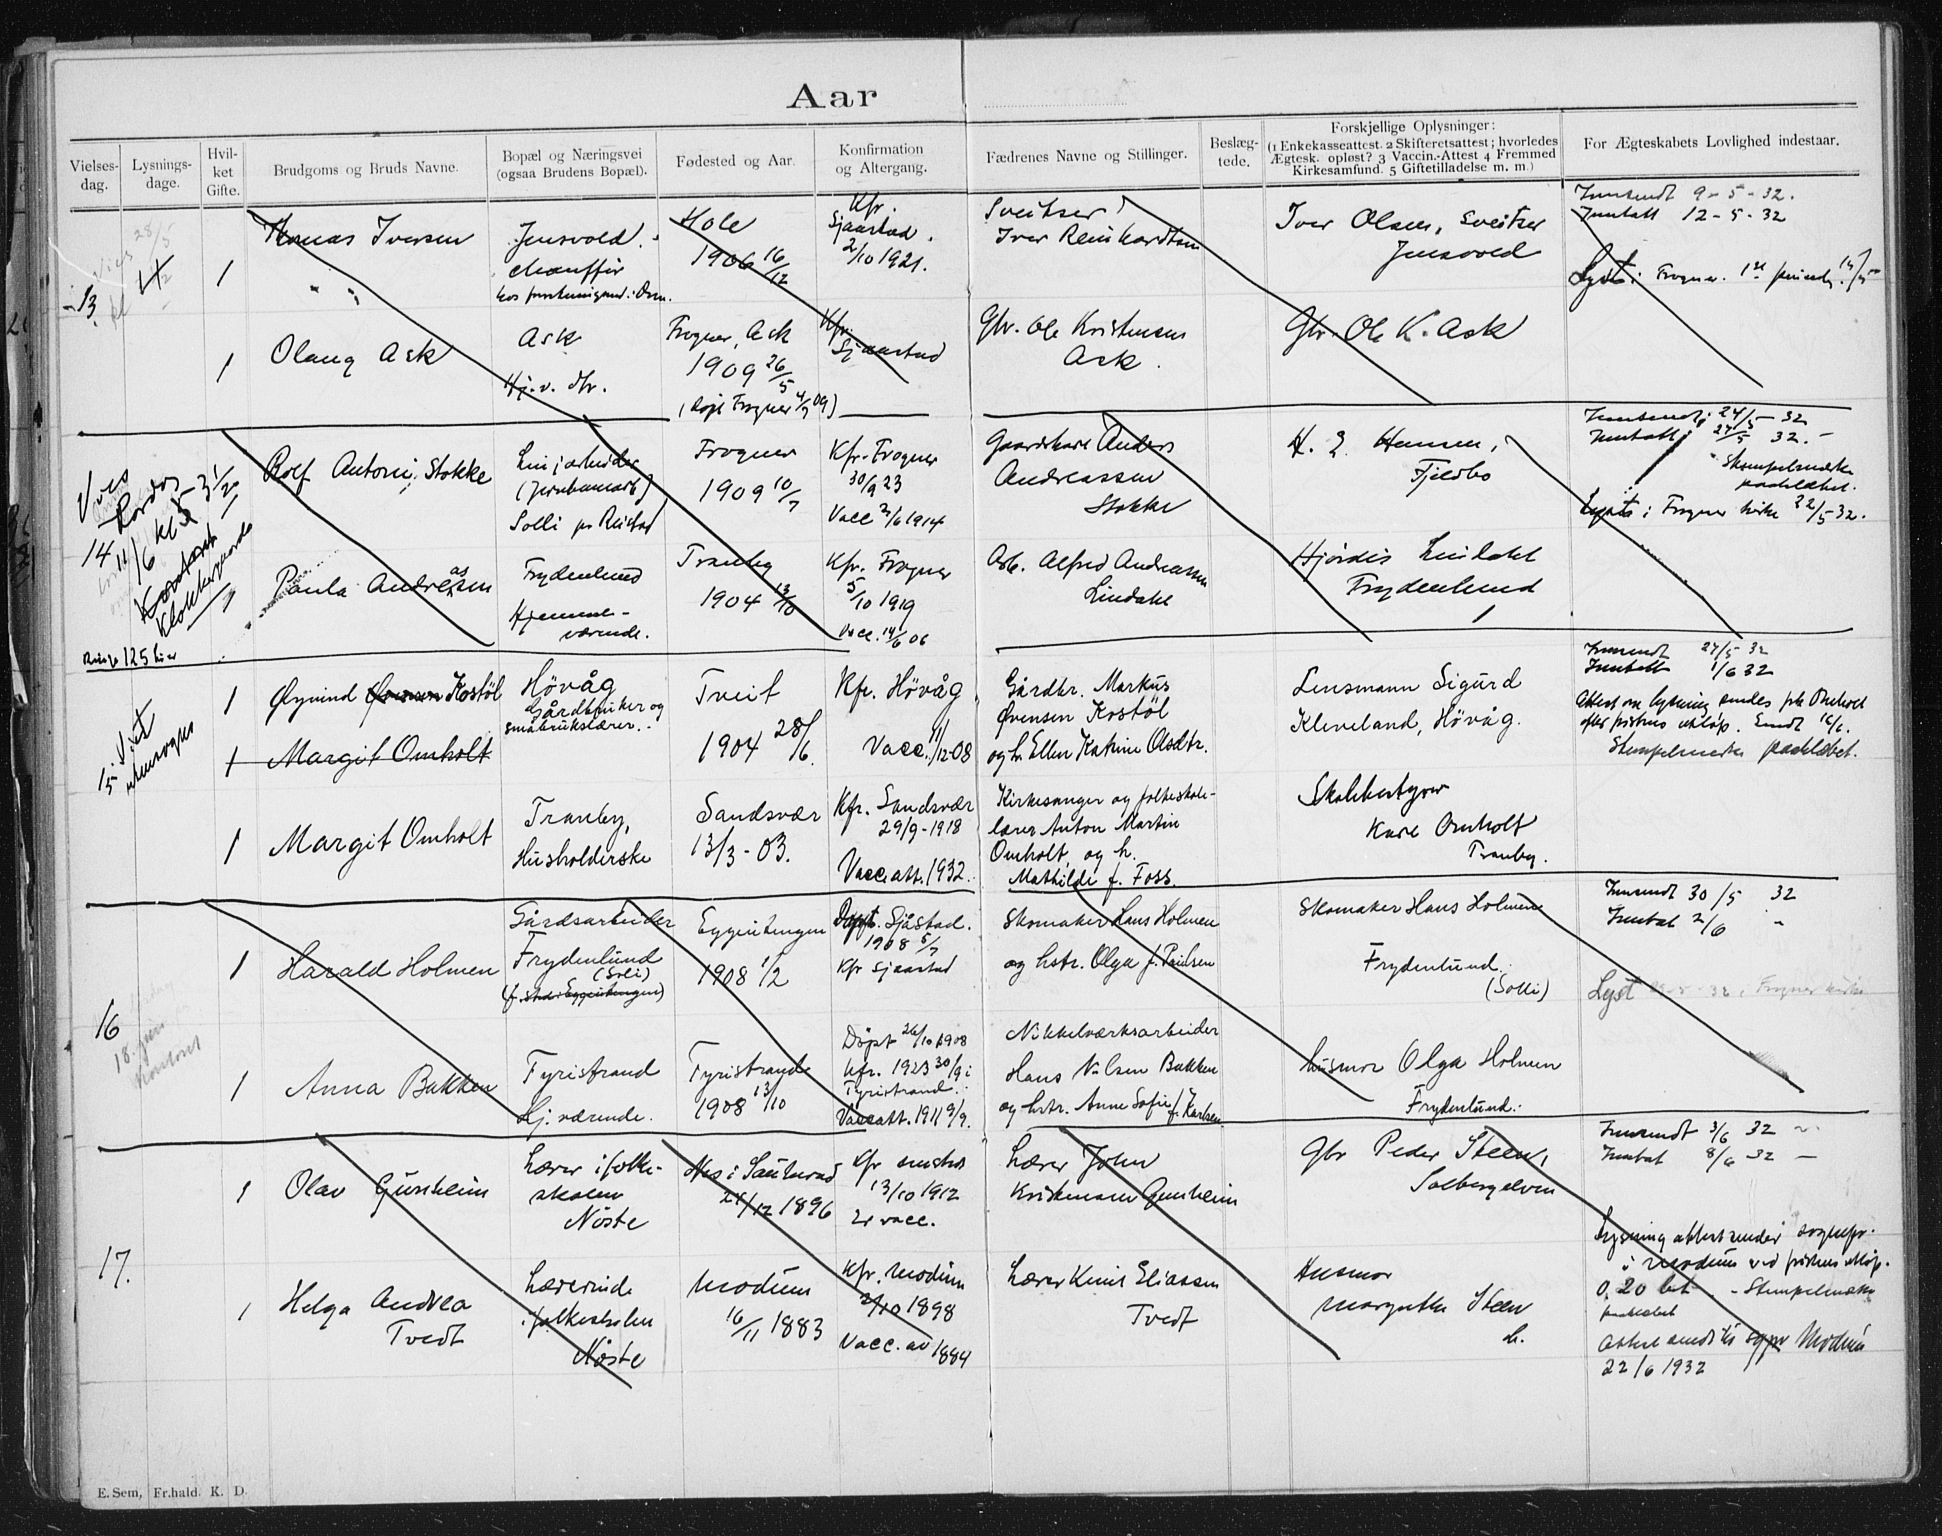 Aar
Vielses-
dag.
Lysnings-
dage.
Hvil-
ket
Gifte.
Brudgoms og Bruds Navne.
Bopæl og Næringsvei
(ogsaa Brudens Bopæl).
Fødested og Aar.
Konfirmation
og Altergang.
Fædrenes Navne og Stillinger.
Beslæg-
tede.
Forskjellige Oplysninger:
(1 Enkekasseattest. 2 Skifteretsattest; hvorledes
Ægtesk. opløst? 3 Vaccin.-Attest 4 Fremmed
Kirkesamfund. 5 Giftetilladelse m. m.)
For Ægteskabets Lovlighed indestaar.
13.
28/5
1
Iversen
Jensvold.
chauffør
Hole
1906 16/12
Kfr.
Sjaastad.
2/10 1921.
Sveitser
Iver Reinhardtsen
Iver Olsen, Sveitser
Jensvold
Innsendt 9-5-32.
Inntatt 12-5-32
Lyst i Frogner
1
Olaug Ask
Ask
Hj. v. dtr.
Frogner, Ask
1909 26/5
(døpt Frogner 4/7 09)
Kfr.
Sjaastad
Gbr. Ole Kristensen
Ask.
Gbr. Ole K. Ask
14
Vies
Lørdag
11/6 kl 5
Kontoret
Klokkergaarden
Ringe 125 hier
Rolf Antoni Stokke
Linjearbeider
(Jernbanearb)
Solli pr Reistad
Frogner
1909 10/7
Kfr. Frogner
30/9 23
Vacc 2/6 1914
Gaardskarl Anders
Andreassen
Stokke
H. E. Hansen,
Fjeldbo
Innsendt 24/5 32
Inntatt 27/5 32.-
Stempelmerke
paaklæbet.
Lyst i Frogner kirke 22/5 32.
Paula Andreassen
Frydenlund
Hjemme-
værende.
Tranby
1904 13/10
Kfr. Frogner
5/10 1919
Vacc. 14/6 06
Arb. Alfred Andreassen
Lindahl
Hjördis Lindahl
Frydenlund
15.
Viet
utensogns
1
Øyvind Øvensen Kostöl
Hövåg
Gårdbruker og
småbrukslærer.
Tveit
1904 28/6.
Kfr. Hövåg
Vacc. 11/12 08
Gårdbr. Markus
Øvensen Kostöl
og h. Ellen Katrine Olsdtr.
Lensmann Sigurd
Kleveland, Hövåg.
Innsendt 27/5 32
Inntatt 1/6 32
Attest om lysning sendes frk Omholt
efter fristens utløp. Sendt 16/6.
Stempelmerke paaklæbet.
1
Margit Omholt
1
Margit Omholt
Tranby,
Husholderske
Sandsvær
13/3-03.
Kfr. Sandsvær
29/9-1918
Vacc. att. 1932.
Kirkesanger og folkeskole-
lærer Anton Martin
Omholt og h.
Mathilde f. Foss.
Skolebestyrer
Karl Omholt
Tranby.
16
18. juni
kontoret
1
Harald Holmen
Gårdsarbeider
Frydenlund
(Solli)
(f. sted: Eggentengen)
Eggentengen
1908 1/2
Døpt. Sjåstad.
1908 5/7
Kfr Sjaastad
Skomaker Hans Holmen
og hstr. Olga f. Paulsen
Skomaker Hans Holmen
Frydenlund.
(Solli)
Innsendt 30/5 32
Inntat 2/6 -
Lyst 22-5-32, Frogner kirke
1
Anna Bakken
Tyristrand
Hj. værende.
Tyristrand
1908 13/10
Döpt 26/10 1908
Kfr. 1923 30/9 i
Tyristrand.
Vacc att. 1911 9/9.
Nikkelværksarbeider
Hans Nilsen Bakken
og hstr. Anne Sofie f. Karlsen
Husmor Olga Holmen
Frydenlund.
17.
1
Olav Gunheim
Lærer i folke-
skolen
Nöste
Nes i Sauherad
21/12 1896
Kfr smsteds
13/10 1912
Er vacc.
Lærer John
Kristensen Gunheim
Gbr Peder Steen,
Solbergelven
Innsendt 3/6 32
Inntat 8/6 32 -
Lysningsattest sendes sognepr.
i Modum ved fristens utløp.
0,20 bet. - Stempelmerke
paaklæbet
Attest sendt til sgpr Modum
22/6 1932
1
Helga Andrea
Tvedt
Lærerinde
i folkeskolen
Nöste
Modum
16/11 1883
Kfr. Modum
2/10 1898
Vacc. av 1884
Lærer Knut Eliassen
Tvedt
Husmor
Margrethe Steen
h.
E. Sem, Fr.hald. K. D.